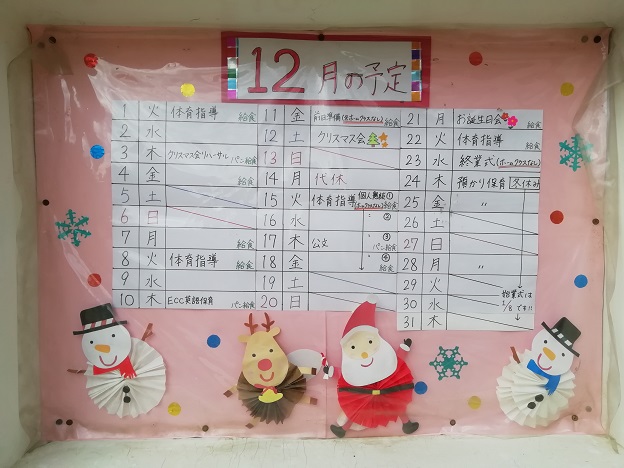 12月の予定
1 火 体育指導 給食
2 水
3 木 クリスマス会リハーサル パン給食
4 金 給食
5 土
6 日
7 月 給食
8 火 体育指導 給食
9 水
10 木 ECC英語保育 パン給食
11 金 前日準備(ホームクラスなし) 給食
12 土 クリスマス会
13 日
14 月 代休
15 火 体育指導 個人懇談① (ホームクラスなし) 給食
16 水 〃 ②
17 木 公文 〃 ③ パン給食
18 金 〃 ④ 給食
19 土
20 日
21 月 お誕生日会 給食
22 火 体育指導 給食
23 水 終業式(ホームクラスなし)
24 木 預かり保育 冬休み
25 金 〃
26 土
27 日
28 月 〃
29 火
30 水
31 木
始業式は
1/8 です!!